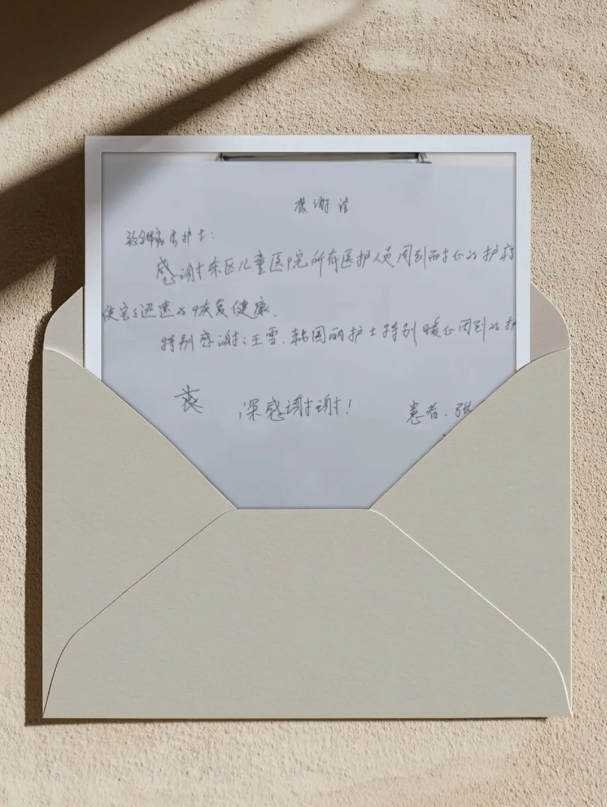 感谢信
致全体医护士:
感谢东区儿童医院所有医护人员周到而专心的护
使宝宝迅速的恢复健康.
特别感谢:王雪.韩园丽护士特别暖心周到的护
衷 深感谢谢!
患者.张